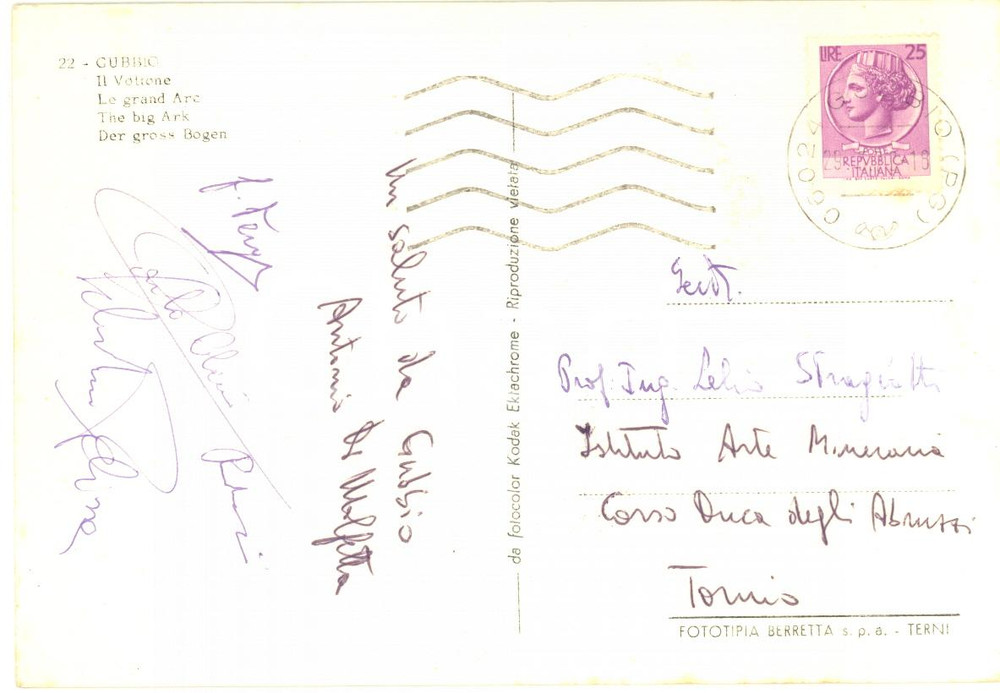 22 - GUBBIO
Il Voltone
Le grand Arc
The big Ark
Der gross Bogen
LIRE 25
REPVBBLICA
ITALIANA
06024 GUBBIO (PG)
Un saluto da Gubbio
Antonio Di Molfetta
Carlo Alberto Rossi
da fotocolor Kodak Ektachrome - Riproduzione vietata
Prof. Ing. Lelio Stragiotti
Istituto Arte Mineraria
Corso Duca degli Abruzzi
Torino
FOTOTIPIA BERRETTA s.p.a. - TERNI